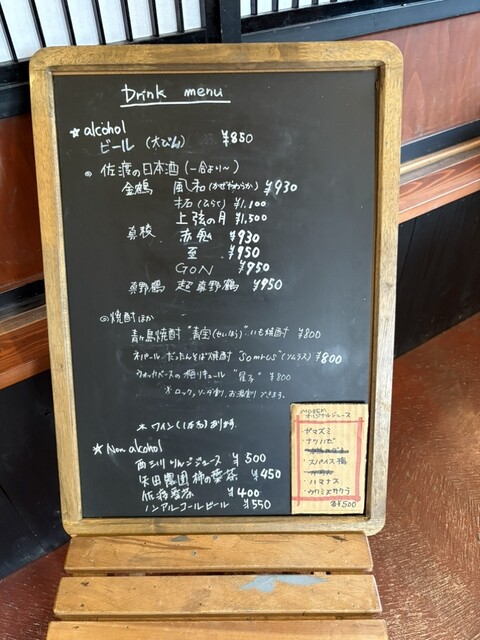 Drink menu
★ alcohol
ビール (大びん) ¥850
◎ 佐渡の日本酒 (一合より〜)
金鶴 風和 (かぜやわらか) ¥930
拓 (ひらく) ¥1.100
上弦の月 ¥1,500
真稜 赤鬼 ¥930
至 ¥950
GON ¥950
真野鶴 超真野鶴 ¥950
◎ 焼酎ほか
青ヶ島焼酎 "青宝 (せいほう)" いも焼酎 ¥800
ネパール だったんそば焼酎 "Somrus" (ソムラス) ¥800
ウォッカベースの梅リキュール "星子" ¥800
※ ロック, ソーダ割, お湯割 できます。
★ Non alcohol
西三川りんごジュース ¥500
矢田農園 柿の葉茶 ¥450
佐渡番茶 ¥400
ノンアルコールビール ¥550
オリジナルジュース
・ヤマズミ
・ナツハゼ
・スパイス梅
・ハマナス
・ウワミズザクラ
各¥500